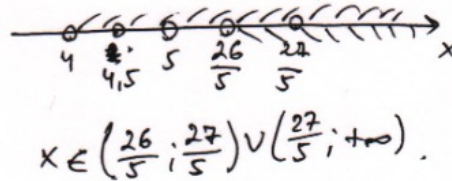 4 4,5 5 26/5 27/5 x
x ∈ (26/5 ; 27/5) ∪ (27/5 ; +∞).